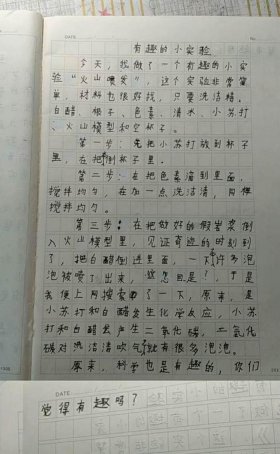 DATE
有趣的小实验
今天，我做了一个有趣的小实
验"火山喷发"，这个实验非常简
单，材料也很好找，只要洗洁精。
白醋、棍子、色素、清水、小苏打
、火山模型和空杯子。
第一步：先把小苏打放到杯子
里，在把倒杯子里。
第二步：在把色素滴到里面，
搅拌均匀，在加一点洗洁清，
搅拌均匀。
第三步：在把做好的假岩浆倒
入火山模型里，见证奇迹的时刻到
了，把白醋倒进里面，一下许多泡
泡被喷了出来，这怎回是？，于是
我便上网搜索了一下，原来，是
小苏打和白醋发生化学反应，小苏
打和白醋会产生二氧化碳，二氧化
碳对洗洁清吹气就有很多泡泡。
原来，科学也是有趣的，你们
DATE
觉得有趣吗？